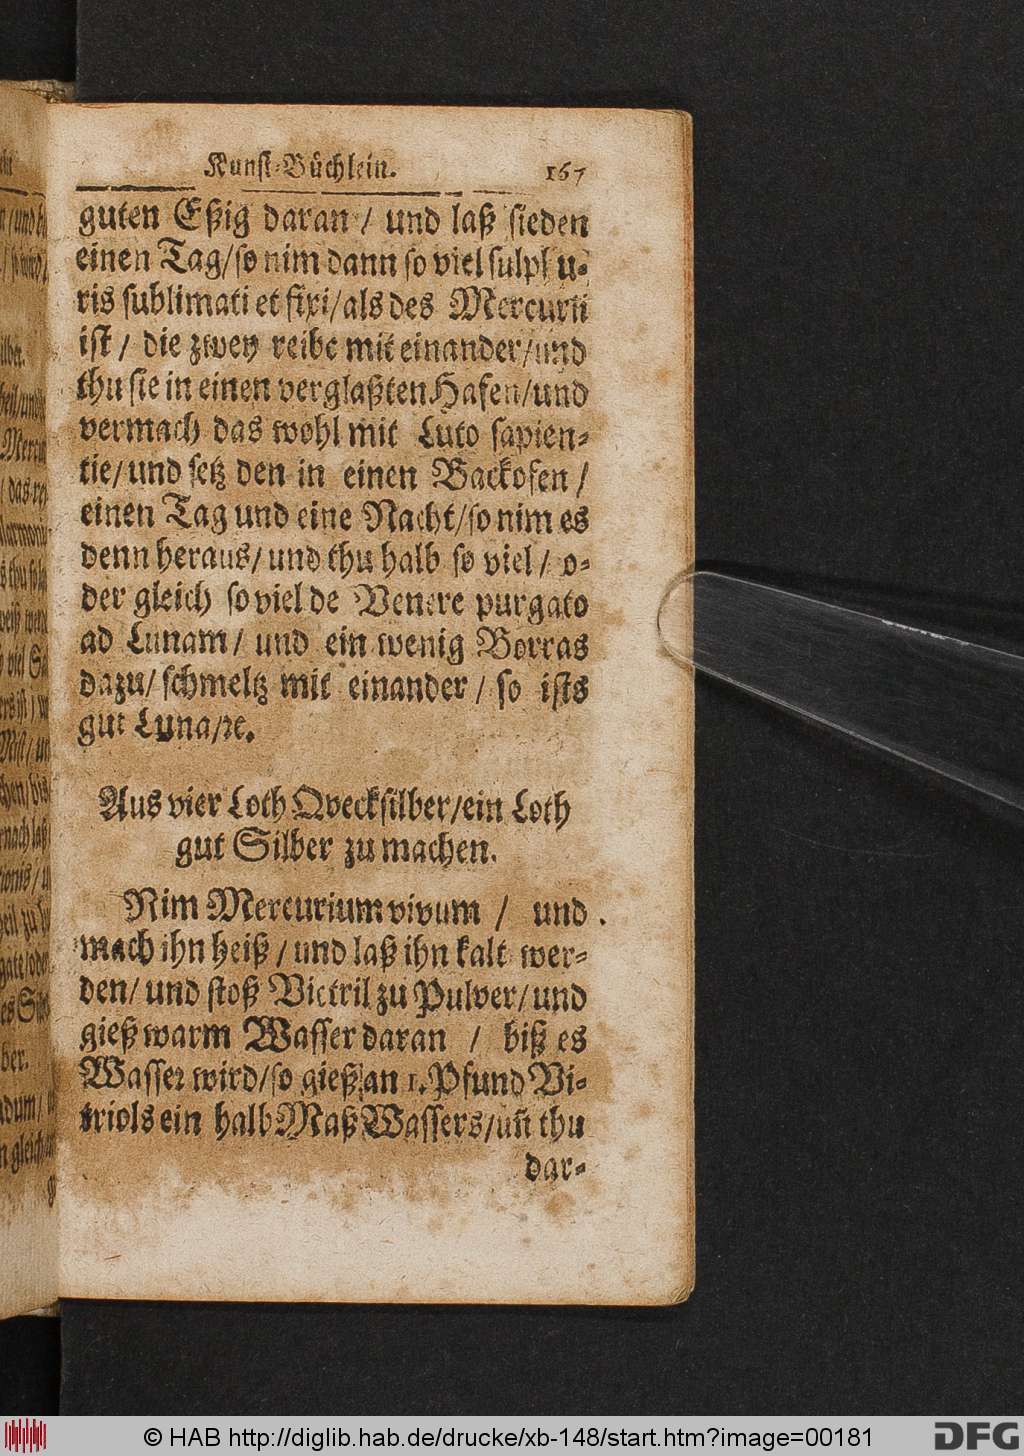 Kunst-Büchlein. 167
guten Eßig daran / und laß sieden
einen Tag/so nim dann so viel sulphu-
ris sublimati et fixi/als des Mercurii
ist / die zwey reibe mit einander/und
thu sie in einen verglaßten Hafen/und
vermach das wohl mit Luto sapien-
tie/und setz den in einen Backofen /
einen Tag und eine Nacht/so nim es
denn heraus/und thu halb so viel / o-
der gleich so viel de Venere purgato
ad Lunam / und ein wenig Borras
dazu/ schmeltz mit einander / so ists
gut Luna/ꝛc.
Aus vier Loth Qvecksilber/ein Loth
gut Silber zu machen.
Nim Mercurium vivum / und
mach ihn heiß / und laß ihn kalt wer-
den/ und stoß Victril zu Pulver/und
gieß warm Wasser daran / biß es
Wasser wird/so gieß an 1. Pfund Vi-
triols ein halb Maß Wassers/uñ thu
dar-
© HAB http://diglib.hab.de/drucke/xb-148/start.htm?image=00181
DFG